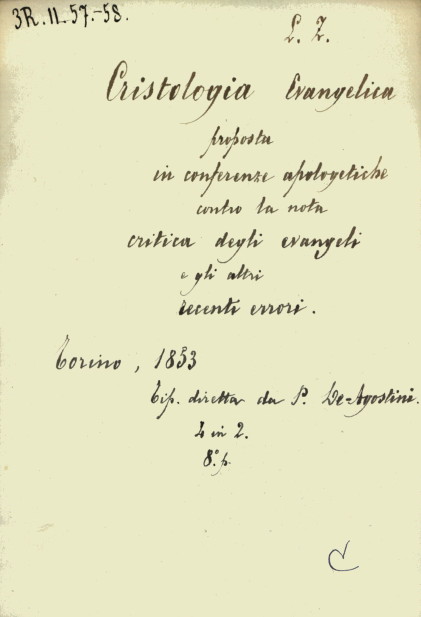 3R.II.57.-58.
L. Z.
Cristologia Evangelica
proposta
in conferenze apologetiche
contro la nota
critica degli evangeli
e gli altri
recenti errori.
Torino, 1853
Tip. diretta da P. De-Agostini.
4 in 2.
8.° p.
C